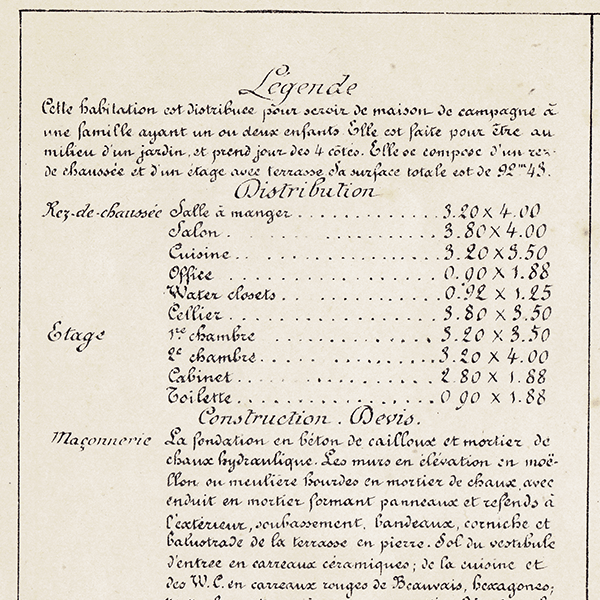 Légende
Cette habitation est distribuée pour servir de maison de campagne à
une famille ayant un ou deux enfants. Elle est faite pour être au
milieu d'un jardin, et prend jour des 4 côtés. Elle se compose d'un rez-
de chaussée et d'un étage avec terrasse. Sa surface totale est de 92ᵐ45.
Distribution
Rez-de-chaussée Salle à manger . . . . . . . . . . . . 3.20 × 4.00
Salon . . . . . . . . . . . . . . . . . 3.80 × 4.00
Cuisine . . . . . . . . . . . . . . . . 3.20 × 3.50
Office . . . . . . . . . . . . . . . . . 0.90 × 1.88
Water closets . . . . . . . . . . . . . 0.92 × 1.25
Cellier . . . . . . . . . . . . . . . . 3.80 × 3.50
Etage 1ʳᵉ chambre . . . . . . . . . . . . . . 3.20 × 3.50
2ᵉ chambre . . . . . . . . . . . . . . . 3.20 × 4.00
Cabinet . . . . . . . . . . . . . . . . 2.80 × 1.88
Toilette . . . . . . . . . . . . . . . . 0.90 × 1.88
Construction . Devis.
Maçonnerie La fondation en béton de cailloux et mortier de
chaux hydraulique. Les murs en élévation en moë-
llon ou meulière hourdes en mortier de chaux, avec
enduit en mortier formant panneaux et refends à
l'extérieur, soubassement, bandeaux, corniche et
balustrade de la terrasse en pierre. Sol du vestibule
d'entree en carreaux céramiques; de la cuisine et
des W.C. en carreaux rouges de Beauvais, hexagones;